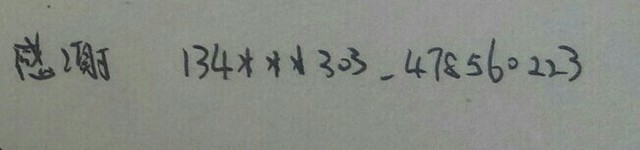 感谢 134***303_478560223